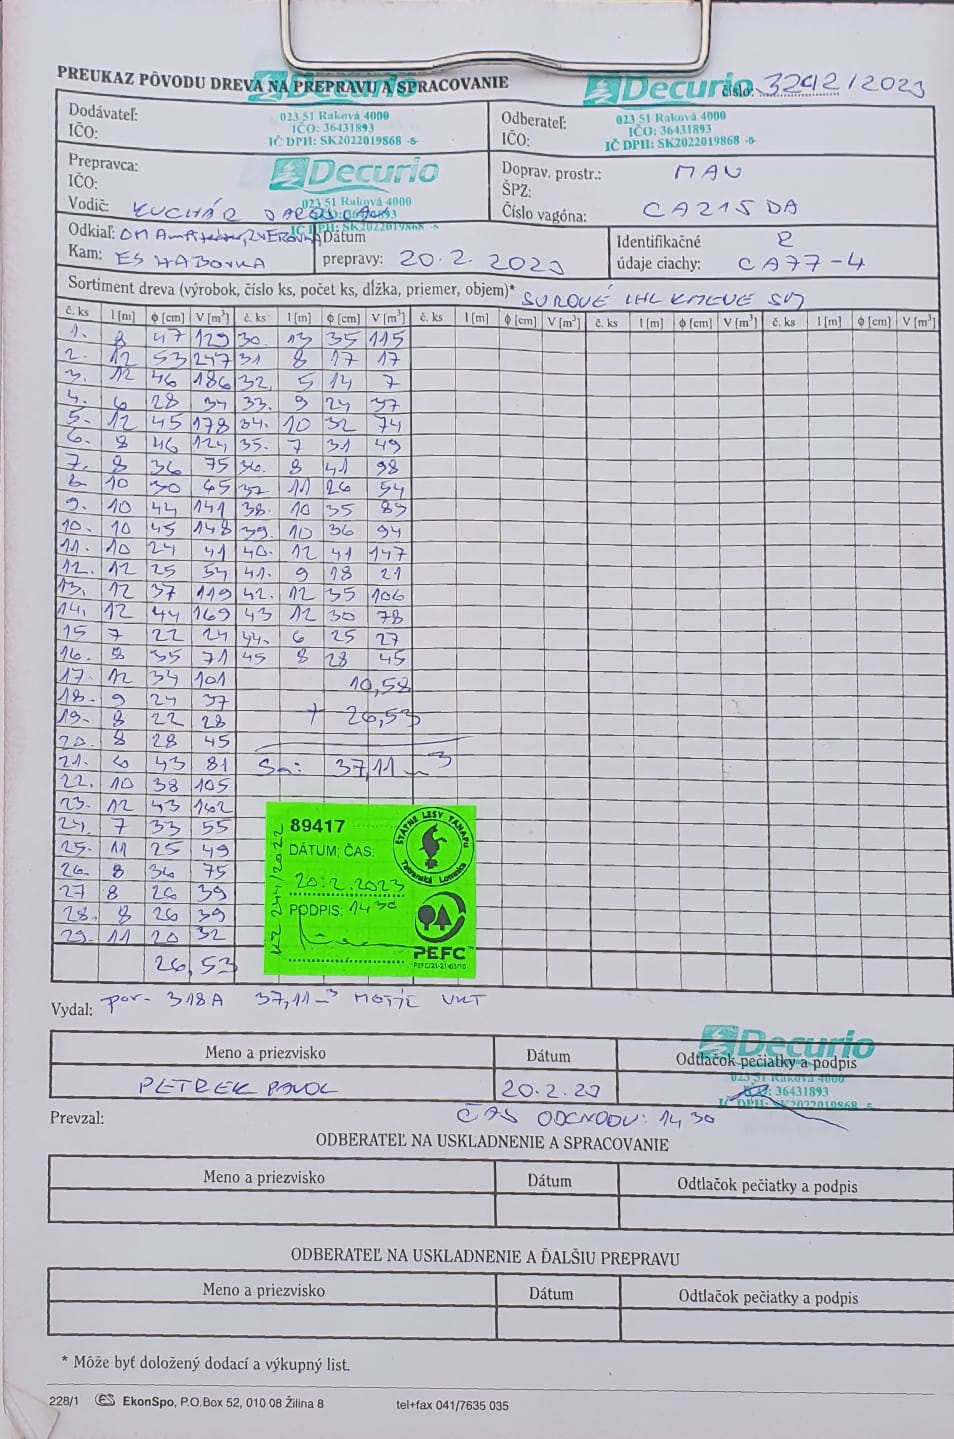 PREUKAZ PÔVODU DREVA NA PREPRAVU A SPRACOVANIE
Decurio
Decurio
číslo: 3292/2023
Dodávateľ:
IČO:
023 51 Raková 4000
IČO: 36431893
IČ DPH: SK2022019868 -5-
Odberateľ:
IČO:
023 51 Raková 4000
IČO: 36431893
IČ DPH: SK2022019868 -5-
Prepravca:
IČO:
Vodič: KUCHÁR
Decurio
023 51 Raková 4000
IČO: 36431893
IČ DPH: SK2022019868 -5-
Doprav. prostr.: MAN
ŠPZ:
Číslo vagóna: CA215DA
Odkiaľ: OM ZVEROVKA
Kam: ES HABOVKA
Dátum
prepravy: 20.2.2023
Identifikačné
údaje ciachy: CA77-4
Sortiment dreva (výrobok, číslo ks, počet ks, dĺžka, priemer, objem)* SUROVÉ IHL KMENE
č. ks l [m] ϕ [cm] V [m³] č. ks l [m] ϕ [cm] V [m³] č. ks l [m] ϕ [cm] V [m³] č. ks l [m] ϕ [cm] V [m³] č. ks l [m] ϕ [cm] V [m³]
1. 8 47 129 30. 13 35 115
2. 12 53 247 31 8 17 17
3. 12 46 186 32. 5 14 7
4. 6 28 34 33. 9 24 37
5. 12 45 178 34. 10 32 74
6. 8 46 124 35. 7 31 49
7. 8 36 75 36. 8 41 98
8. 10 30 65 37 11 26 54
9. 10 44 141 38. 10 35 89
10. 10 45 148 39. 10 36 94
11. 10 24 41 40. 12 41 147
12. 12 25 54 41. 9 18 21
13. 12 37 119 42. 12 35 106
14. 12 44 169 43 12 30 78
15 7 22 24 44. 6 25 27
16. 8 35 71 45 8 28 45
17. 12 34 101 10,58
18. 9 24 37
19. 8 22 28 + 26,53
20. 8 28 45
21. 6 43 81 Sa: 37,11 m3
22. 10 38 105
23. 12 43 162
24. 7 33 55
25. 11 25 49
26. 8 36 75
27 8 26 39
28. 8 26 39
29. 11 20 32
26,53
89417
DÁTUM; ČAS:
20.2.2023
PODPIS: 14 30
ŠTÁTNE LESY TANAPU
Tatranská Lomnica
PEFC
PEFC/21-21-03/10
Vydal: por- 318A 37,11 m3 MOTÍC VKT
Meno a priezvisko Dátum Odtlačok pečiatky a podpis
PETREK PAVOL 20.2.23
Decurio
023 51 Raková 4000
IČO: 36431893
IČ DPH: SK2022019868 -5-
Prevzal: ČAS ODCHODU: 14 30
ODBERATEĽ NA USKLADNENIE A SPRACOVANIE
Meno a priezvisko Dátum Odtlačok pečiatky a podpis
ODBERATEĽ NA USKLADNENIE A ĎALŠIU PREPRAVU
Meno a priezvisko Dátum Odtlačok pečiatky a podpis
* Môže byť doložený dodací a výkupný list.
228/1 ES EkonSpo, P.O.Box 52, 010 08 Žilina 8 tel+fax 041/7635 035